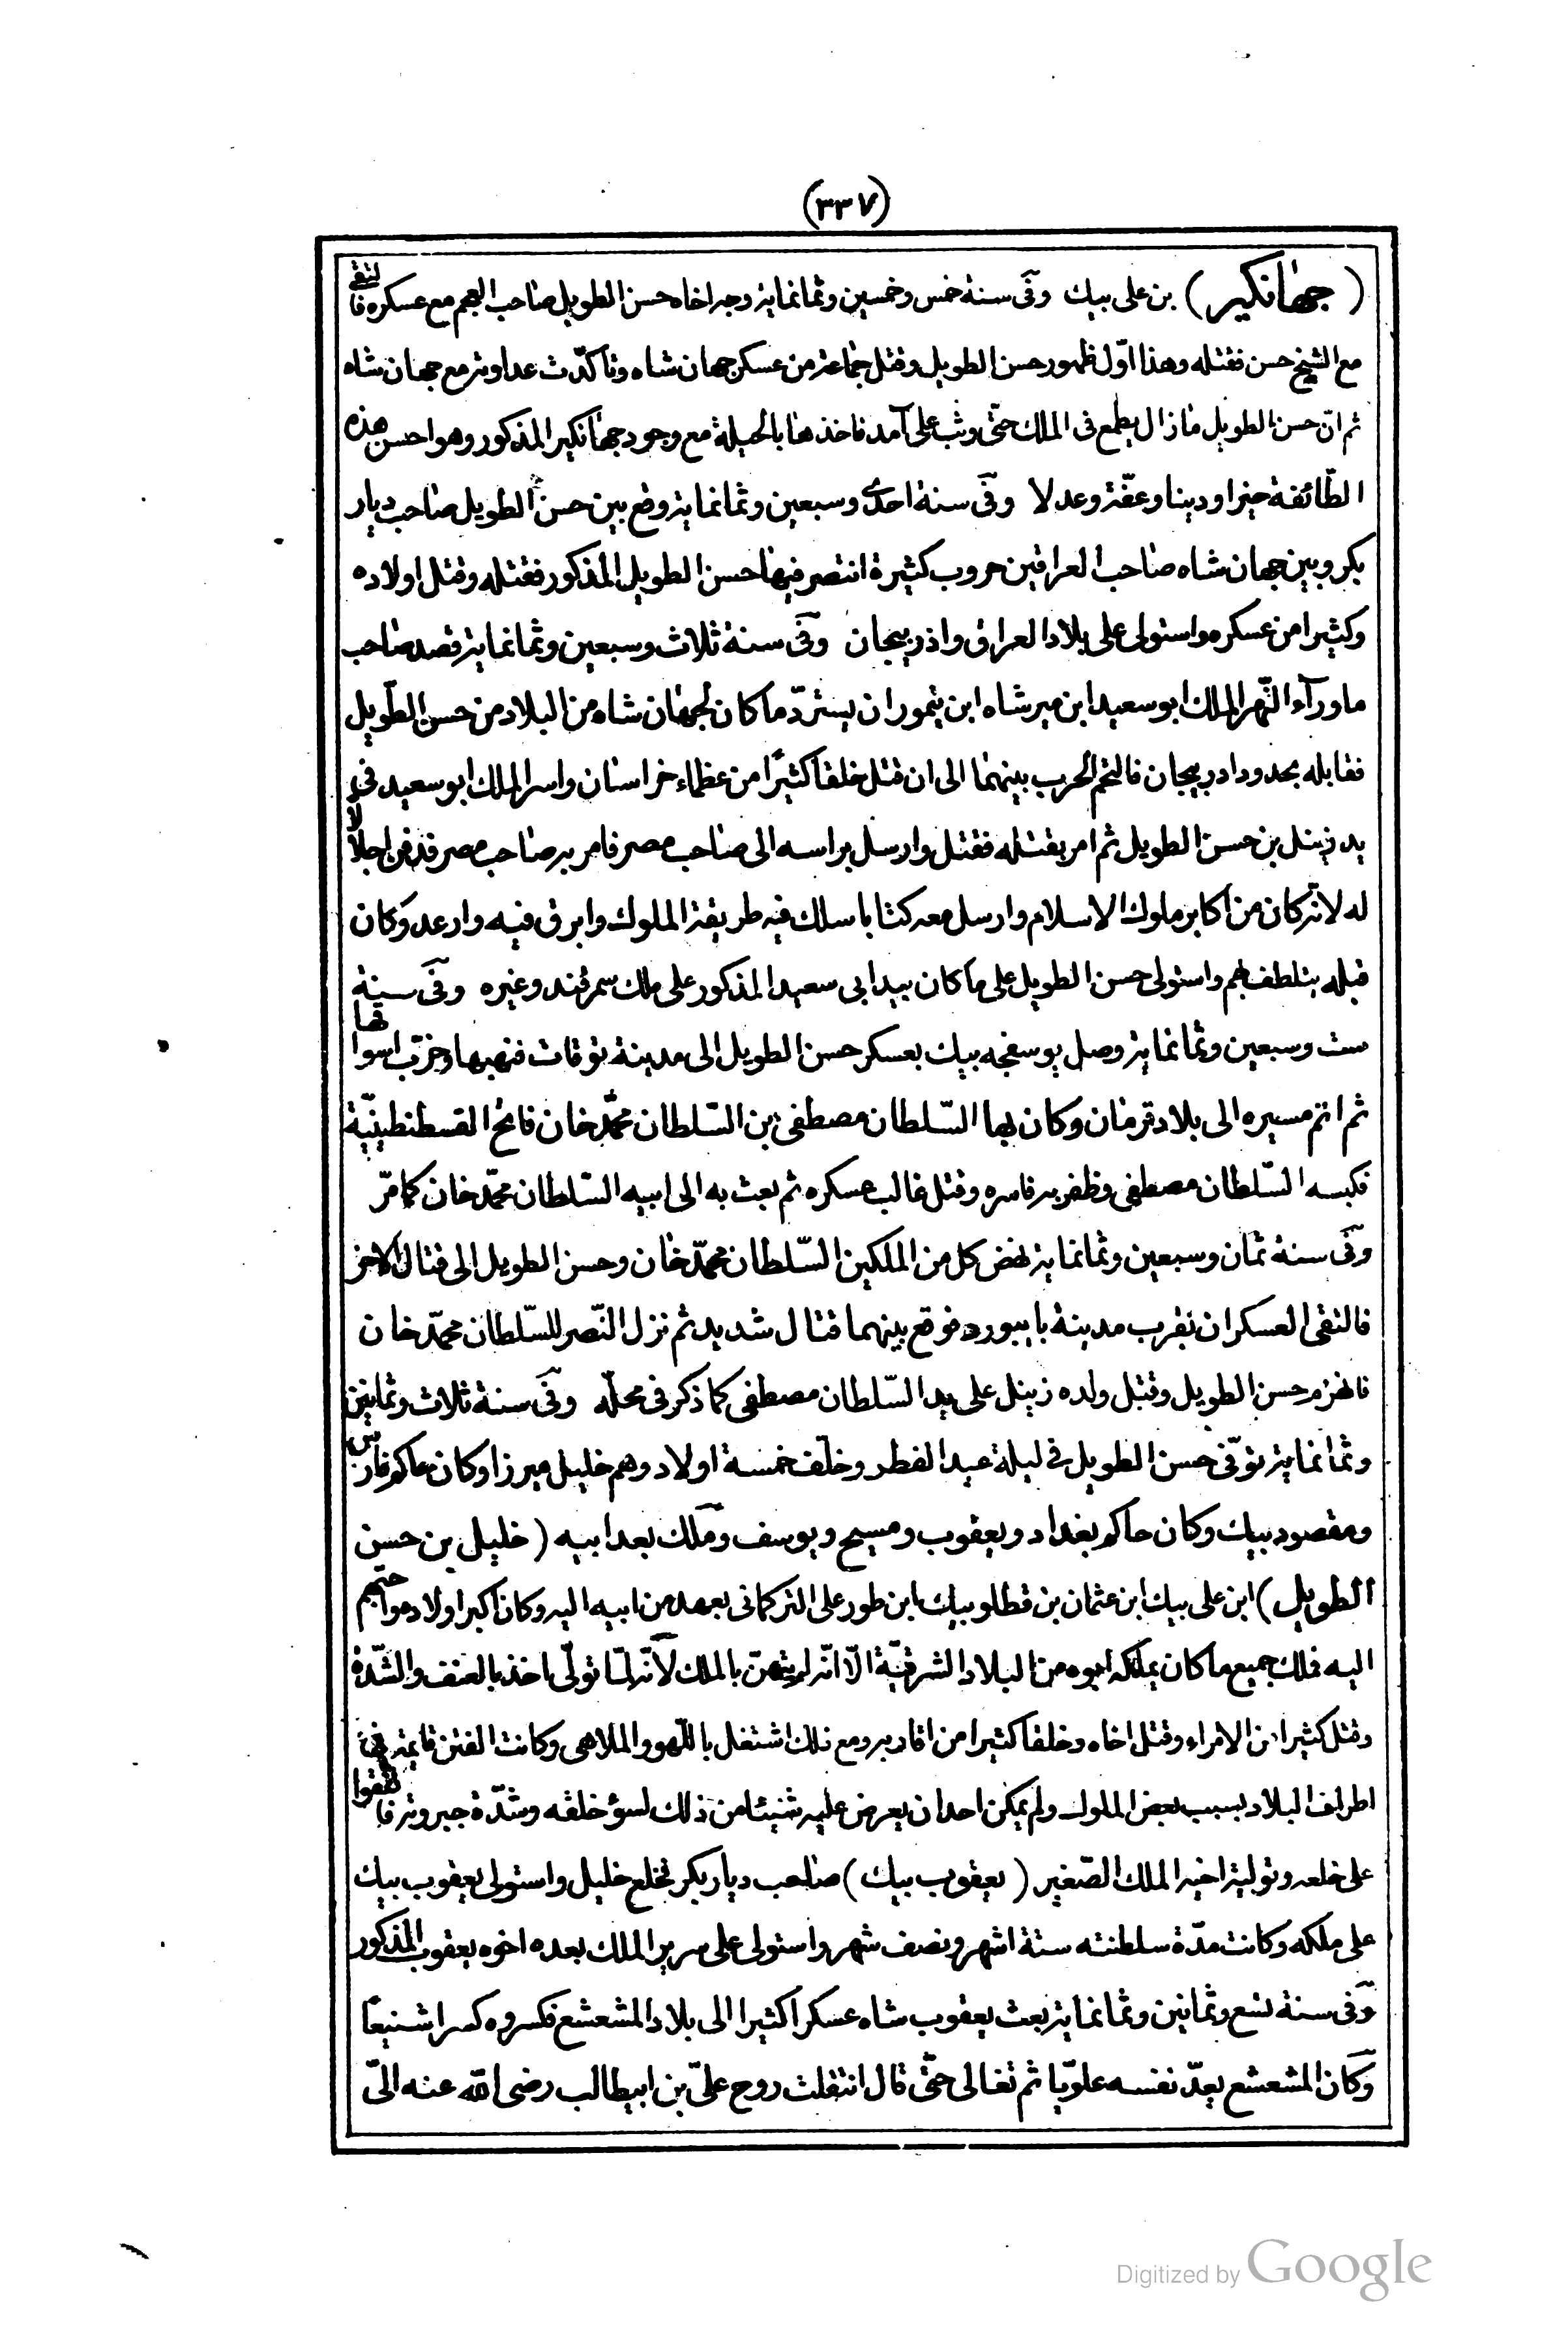 (٣٣٧)
(جهانكير) بن على بيك وفى سنة خمس وخمسين وثمانماية وجه اخاه حسن الطويل صاحب العجم مع عسكره فالتقى
مع الشيخ حسن فقتله وهذا اوّل ظهور حسن الطويل وقتل جماعة من عسكر جهان شاه وتأكدّت عداوته مع جهان شاه
ثم انّ حسن الطويل مازال يطمع فى الملك حتّى وثب على آمد فاخذها بالحيلة مع وجود جهانكير المذكور وهو احسن هذه
الطّائفة خيرا ودينا وعفّة وعدلا وفى سنة احدى وسبعين وثمانماية وقع بين حسن الطويل صاحب ديار
بكر وبين جهان شاه صاحب العراقين حروب كثيرة انتصر فيها حسن الطويل المذكور فقتله وقتل اولاده
وكثيرا من عسكره واستولى على بلاد العراق واذربيجان وفى سنة ثلاث وسبعين وثمانماية قصد صاحب
ماورآء النّهر الملك ابو سعيد ابن ميرشاه ابن تيمور ان يستردّ ما كان لجهان شاه من البلاد من حسن الطّويل
فقابله بحدود ادربيجان فالتحم الحرب بينهما الى ان قتل خلقا كثيرًا من عظماء خراسان واسر الملك ابو سعيد فى
يد زينل بن حسن الطويل ثم امر بقتله فقتل وارسل براسه الى صاحب مصر فامر به صاحب مصر فدفن اجلالا
له لانه كان من اكابر ملوك الاسلام وارسل معه كتابا سلك فيه طريقة الملوك وابرق فيه وارعد وكان
قبله يتلطف لهم واستولى حسن الطويل على ما كان بيد ابى سعيد المذكور على ملك سمرقند وغيره وفى سنة
ست وسبعين وثمانماية وصل يوسفجه بيك بعسكر حسن الطويل الى مدينة توقات فنهبها وخرّب اسواقها
ثم اتم مسيره الى بلاد قرمان وكان بها السّلطان مصطفى بن السّلطان محمّد خان فاتح القسطنطينيّة
فكبسه السّلطان مصطفى وظفر به فاسره وقتل غالب عسكره ثم بعث به الى ابيه السّلطان محمّد خان كما مرّ
وفى سنة ثمان وسبعين وثمانماية نهض كل من الملكين السّلطان محمّد خان وحسن الطويل الى قتال الاخر
فالتقى العسكران بقرب مدينة بايبورد فوقع بينهما قتال شديد ثم نزل النّصر للسّلطان محمّد خان
فانهزم حسن الطويل وقتل ولده زينل على يد السّلطان مصطفى كما ذكر فى محلّه وفى سنة ثلاث وثمانين
وثمانماية توفّى حسن الطويل فى ليلة عيد الفطر وخلّف خمسة اولاد وهم خليل ميرزا وكان حاكم فارس
ومقصود بيك وكان حاكم بغداد ويعقوب ومسيح ويوسف وملك بعد ابيه (خليل بن حسن
الطويل) ابن على بيك ابن عثمان بن قطلو بيك ابن طور على التركمانى بعهد من ابيه اليه وكان اكبر اولاده واحبّهم
اليه فملك جميع ما كان يملكه ابوه من البلاد الشرقيّة الّا انّه لم يتهنّ بالملك لأنّه لمّا تولّى اخذ بالعنف والشّدة
وقتل كثيرا من الامراء وقتل اخاه وخلقا كثيرا من اقاربه ومع ذلك اشتغل باللّهو والملاهى وكانت الفتن قايمة فى
اطراف البلاد بسبب بعض الملوك ولم يمكن احدا ان يعرض عليه شيئا من ذلك لسؤ خلقه وشدّة جبروته فاتفقوا
على خلعه وتولية اخيه الملك الصّغير (يعقوب بيك) صاحب ديار بكر فخلع خليل واستولى يعقوب بيك
على ملكه وكانت مدّة سلطنته ستة اشهر ونصف شهر واستولى على سرير الملك بعده اخوه يعقوب المذكور
وفى سنة تسع وثمانين وثمانماية بعث يعقوب شاه عسكرا كثيرا الى بلاد المشعشع فكسروه كسرا شنيعًا
وكان المشعشع يعدّ نفسه علويّا ثم تغالى حتّى قال انتقلت روح علىّ بن ابيطالب رضى الله عنه الىّ
Digitized by Google